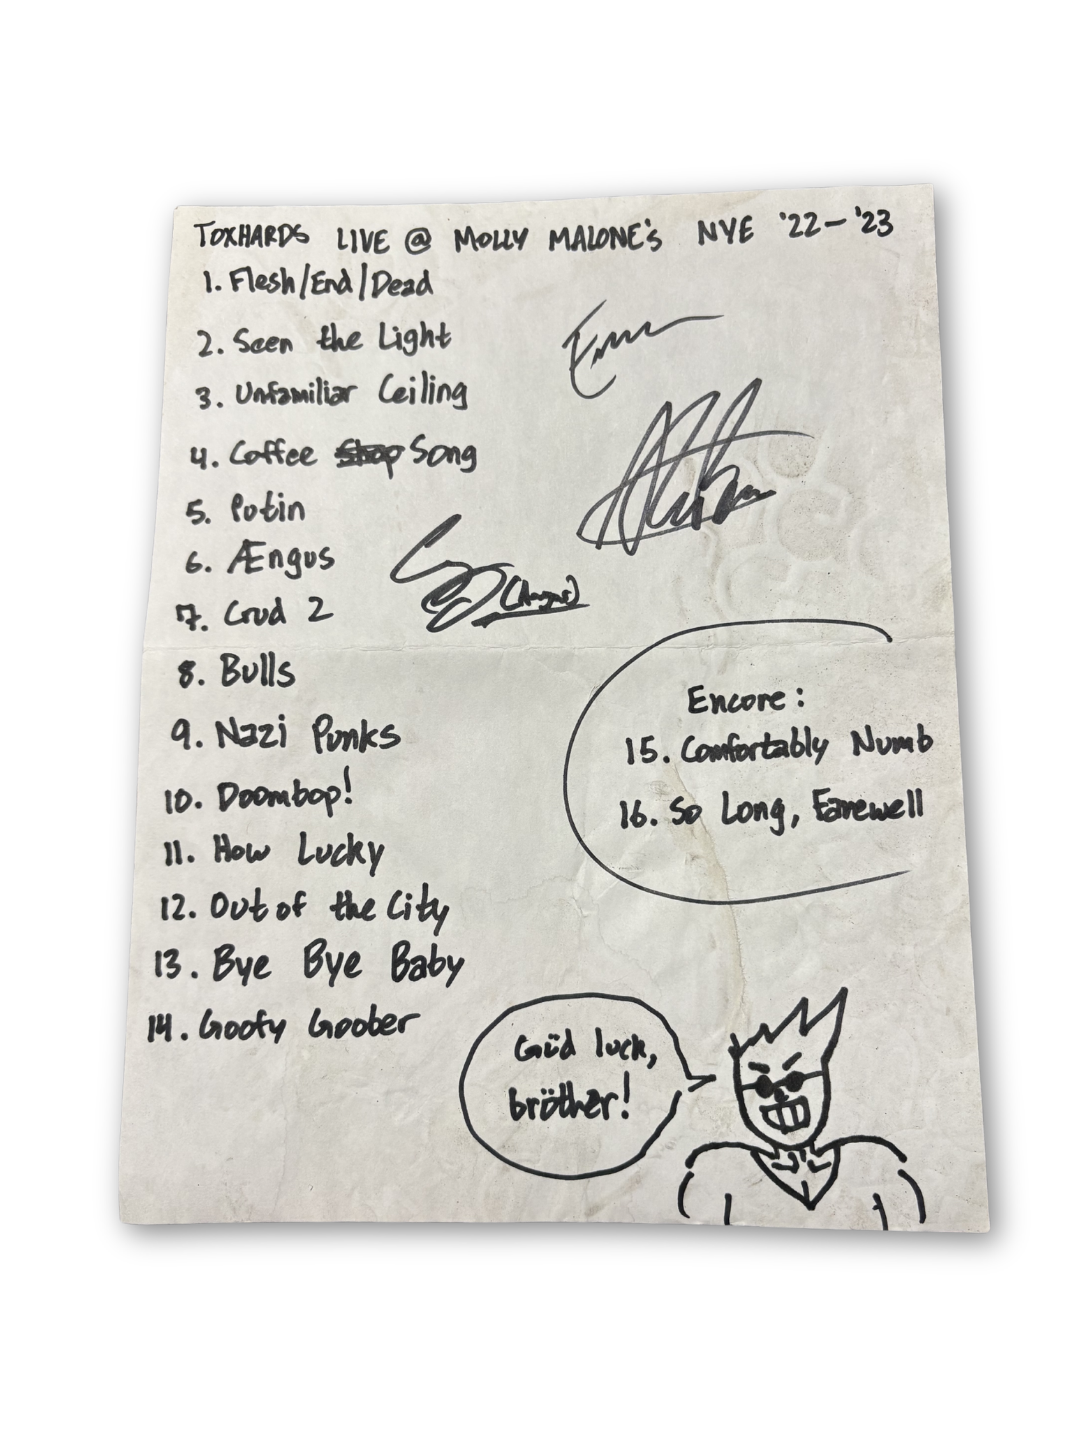 TOXHARDS LIVE @ MOLLY MALONE's NYE '22-'23
1. Flesh/End/Dead
2. Seen the Light
3. Unfamiliar Ceiling
4. Coffee Shop Song
5. Potin
6. Ængus
7. Crud 2
8. Bulls
9. Nazi Punks
10. Doombop!
11. How Lucky
12. Out of the City
13. Bye Bye Baby
14. Goofy Goober
(Angus)
Encore:
15. Comfortably Numb
16. So Long, Farewell
Güd luck,
bröther!